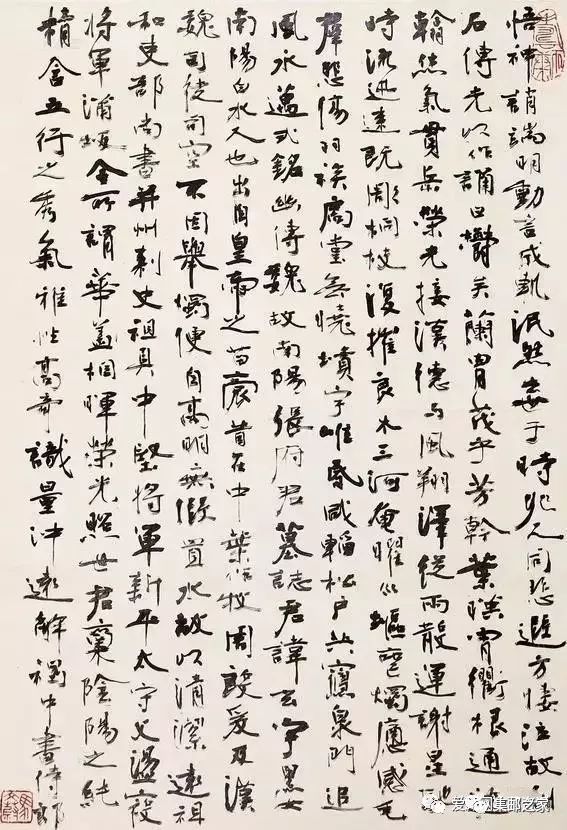 悟神誚端明動言成軌泯然去世于時兆人同悲遐方悽泣故刊
石傳光以作誦曰鬱矣蘭冑茂乎芳幹葉映霄衢根通海
翰然氣貫岳榮光接漢德与風翔澤從雨散運謝星馳
時流迅速既彫桐枝復摧良木三河奄曜川塢燭痛感毛
群悲傷羽族扃堂無曉墳宇唯昏咸韜松戶共寢泉門追
風永邁式銘幽傳魏故南陽張府君墓誌君諱玄字黑女
南陽白水人也出自皇帝之苗裔昔在中葉作牧周殷爰及漢
魏司徒司空不因舉燭便自高明無假置水故以清潔遠祖
和吏部尚書并州刺史祖具中堅將軍新平太守父盪寇
將軍蒲坂令所謂華蓋相暉榮光照世君稟陰陽之純
精含五行之秀氣雅性高奇識量沖遠解褐中書侍郎